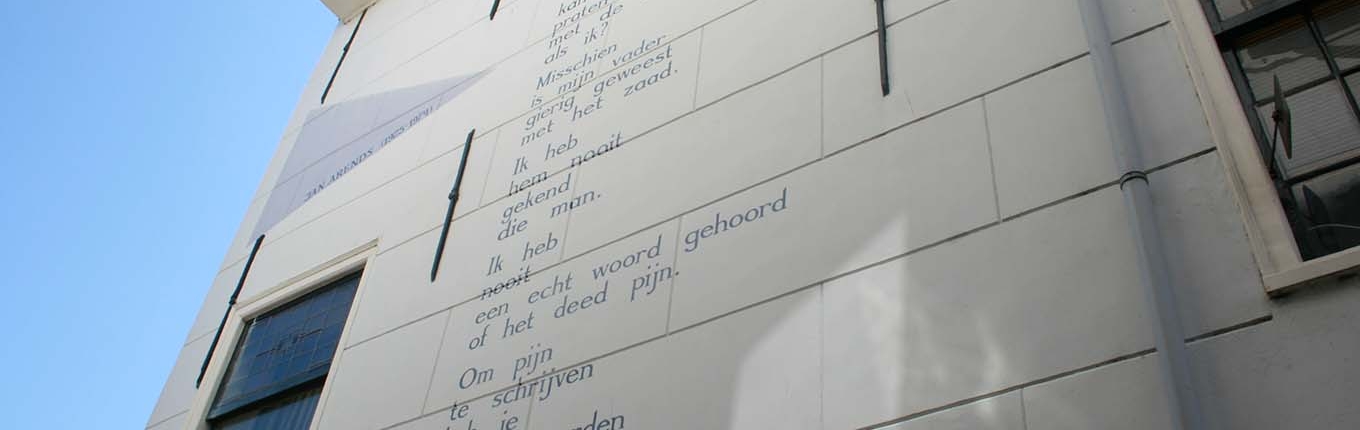 kan
praten
met de
als ik?
Misschien
is mijn vader
gierig geweest
met het zaad.
Ik heb
hem nooit
gekend
die man.
Ik heb
nooit
een echt woord gehoord
of het deed pijn.
Om pijn
te schrijven
je
JAN ARENDS (1925-1974)